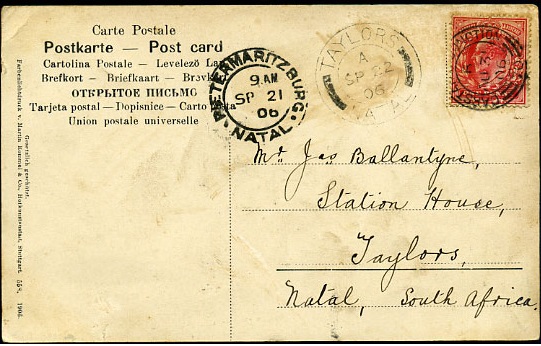 Carte Postale
Postkarte — Post card
Cartolina Postale — Levelező Lap
Brefkort — Briefkaart — Brevkort
ОТКРЫТОЕ ПИСЬМО
Tarjeta postal — Dopisnice — Carto
Union postale universelle
PIETERMARITZBURG
9.AM
SP 21
06
NATAL
TAYLORS
A
SP 2
06
NATAL
Mr Jas Ballantyne,
Station House,
Taylors,
Natal, South Africa.
Farbenlichtdruck v. Martin Rommel & Co., Hofkunstanstalt, Stuttgart. 558, 1906.
Gesetzlich geschützt.